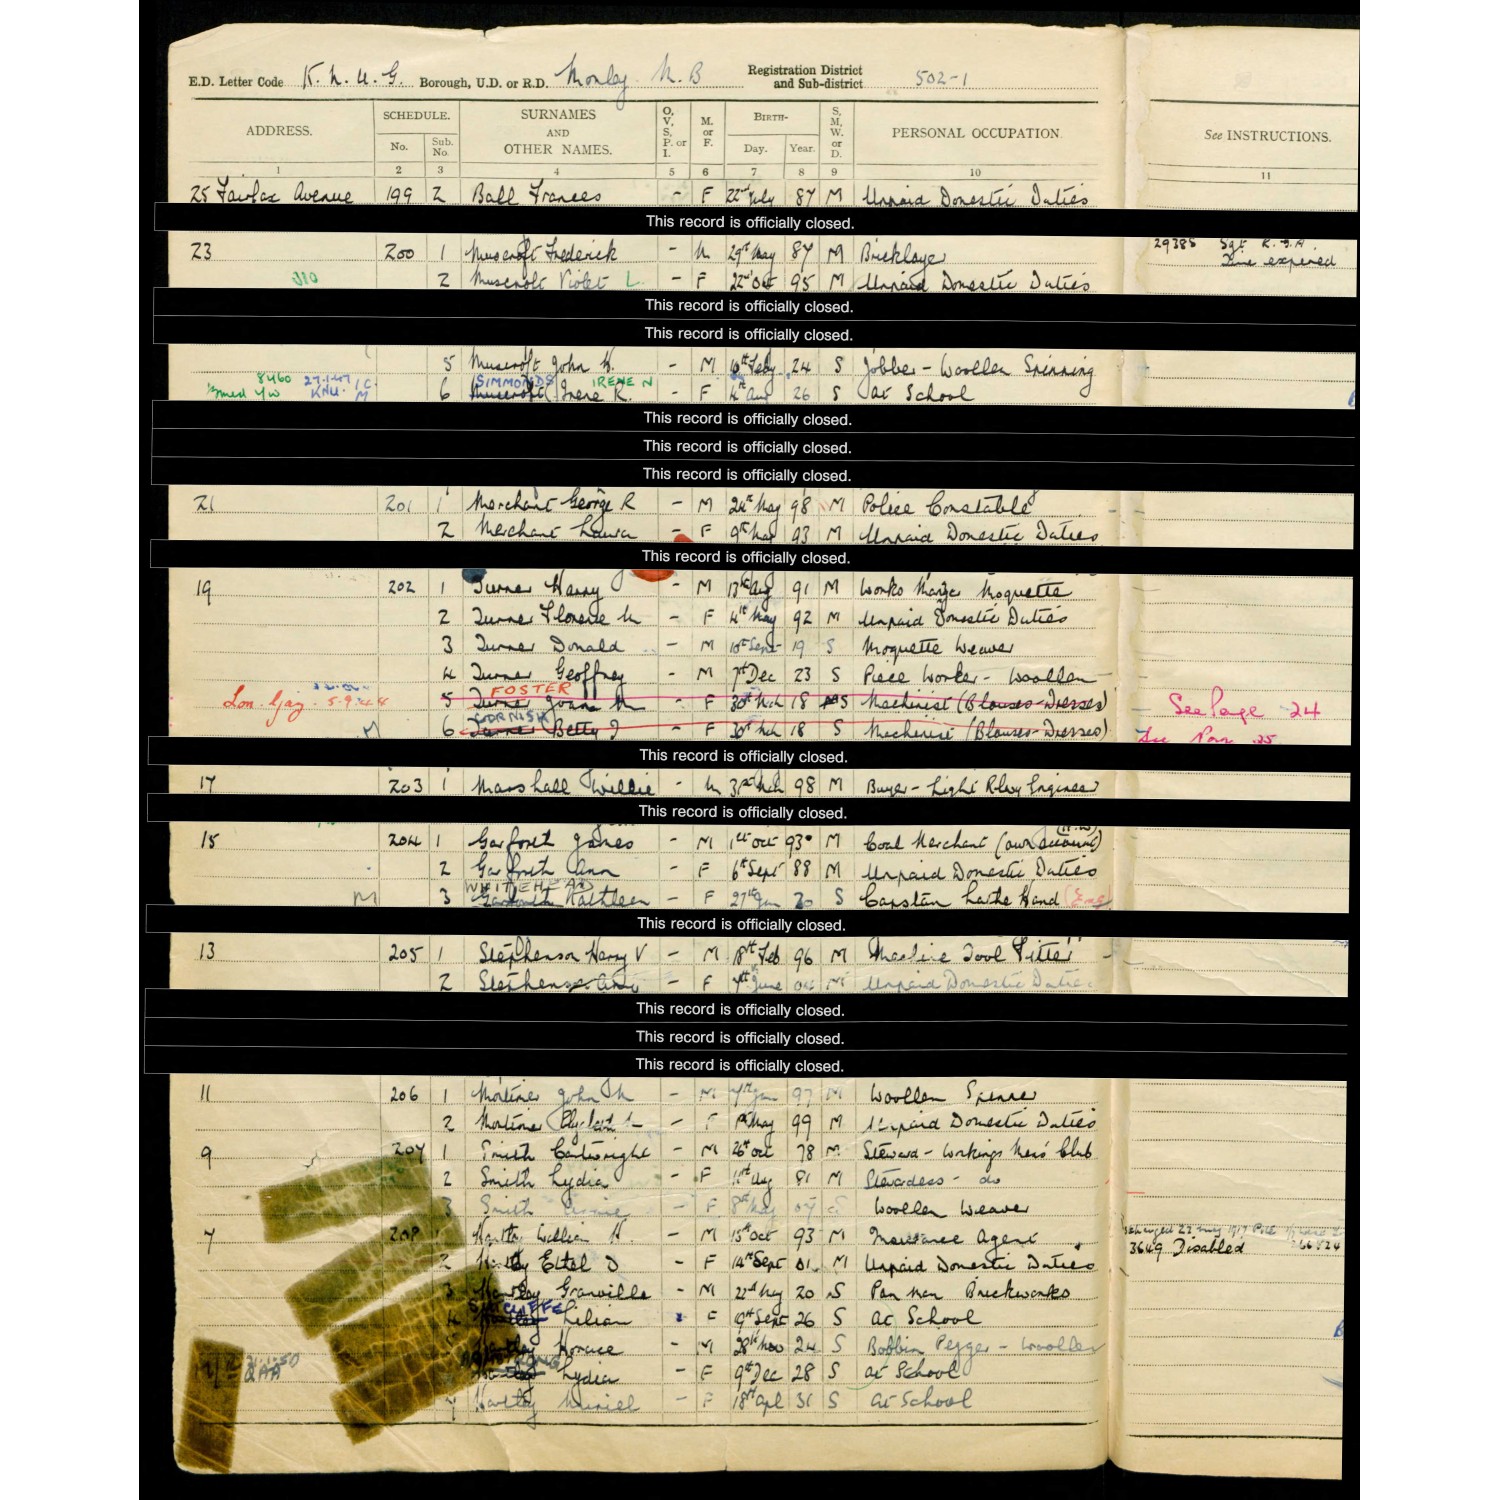 E.D. Letter Code K.N.U.G. Borough, U.D. or R.D. Morley M.B Registration District and Sub-district 502-1
ADDRESS. SCHEDULE. No. Sub. No. SURNAMES AND OTHER NAMES. O, V, S, P. or I. M. or F. BIRTH- Day. Year. S, M, W, or D. PERSONAL OCCUPATION. See INSTRUCTIONS.
1 2 3 4 5 6 7 8 9 10 11
25 Fairfax Avenue 199 2 Ball Frances - F 22nd July 87 M Unpaid Domestic Duties
This record is officially closed.
23 200 1 Muscroft Frederick - M 29th May 87 M Bricklayer 29385 Sgt R.G.A. Time expired
2 Muscroft Violet L - F 22nd Oct 95 M Unpaid Domestic Duties
This record is officially closed.
This record is officially closed.
5 Muscroft John W. - M 10th Feby 24 S Jobber - Woollen Spinning
8460 27.1.47 KNU. SIMMONDS IRENE N
6 Muscroft Irene R. - F 4th Aug 26 S At School
This record is officially closed.
This record is officially closed.
This record is officially closed.
21 201 1 Merchant George R - M 24th May 98 M Police Constable
2 Merchant Laura - F 9th Mar 93 M Unpaid Domestic Duties
This record is officially closed.
19 202 1 Turner Harry - M 13th Aug 91 M Works Mangr Moquette
2 Turner Florence M - F 4th May 92 M Unpaid Domestic Duties
3 Turner Donald - M 10th Sept 19 S Moquette Weaver
4 Turner Geoffrey - M 7th Dec 23 S Piece Worker - Woollen
FOSTER
Lon. Gaz. 5.9.44 5 Turner Joan M - F 30th Mch 18 S Machinist (Blouses-Dresses) See Page 24
CORNISH
M 6 Turner Betty J - F 30th Mch 18 S Machinist (Blouses-Dresses) See Page 25
This record is officially closed.
17 203 1 Marshall Willie - M 31st Mch 98 M Buyer - Light Rlwy Engineer
This record is officially closed.
15 204 1 Garforth James - M 1st Oct 93 M Coal Merchant (own account)
2 Garforth Ann - F 6th Sept 88 M Unpaid Domestic Duties
WHITEHEAD
M 3 Garforth Kathleen - F 27th Jan 20 S Capstan Lathe Hand (Eng)
This record is officially closed.
13 205 1 Stephenson Harry V - M 18th Feb 96 M Machine Tool Fitter
2 Stephenson Amy - F 7th June 04 M Unpaid Domestic Duties
This record is officially closed.
This record is officially closed.
This record is officially closed.
11 206 1 Mortimer John M - M 7th Jan 97 M Woollen Spinner
2 Mortimer - F 1st May 99 M Unpaid Domestic Duties
9 207 1 Smith Cartwright - M 26th Oct 78 M Steward - Workings Mens Club
2 Smith Lydia - F 11th Aug 81 M Stewardess - do
3 Smith Annie - F 8th May 07 S Woollen Weaver
7 208 1 Hartley William H. - M 15th Oct 93 M Insurance Agent 3649 Disabled
2 Hartley Ethel D - F 14th Sept 01 M Unpaid Domestic Duties
3 Hartley Granville - M 22nd Aug 20 S Pan Man Brickworks
SUTCLIFFE
4 Hartley Lilian F 19th Sept 26 S At School
5 Hartley Horace - M 28th Nov 24 S Bobbin Pegger - Woollen
Hartley Lydia - F 9th Dec 28 S At School
7 Hartley Muriel - F 18th Apl 31 S At School